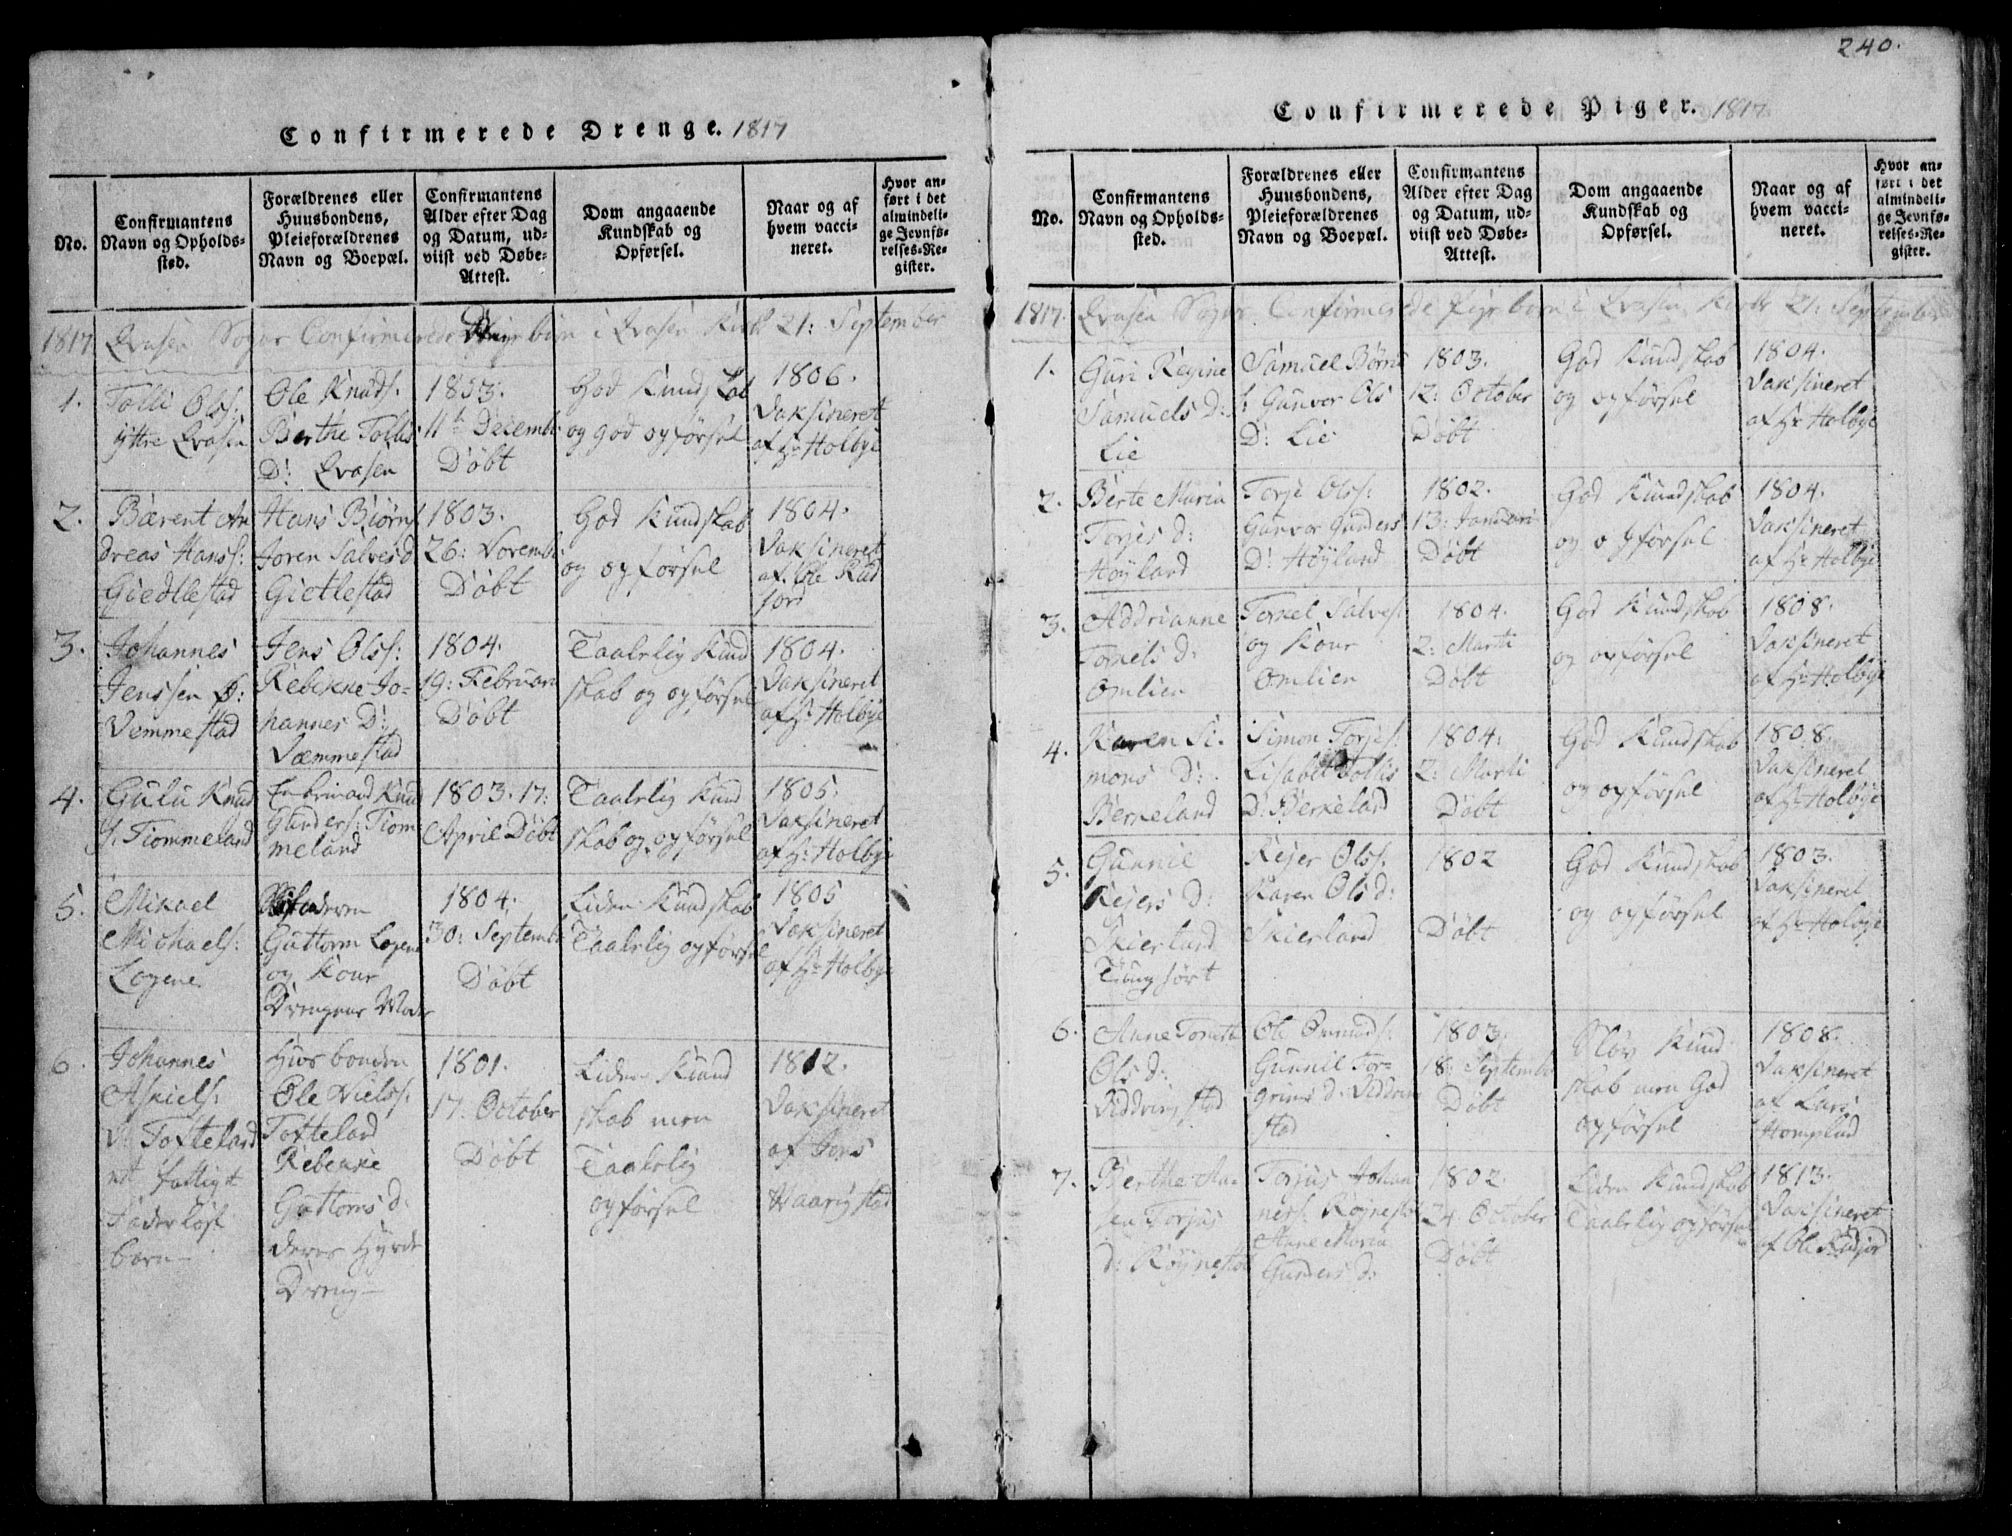 240.
Confirmerede Drenge. 1817
No.
Confirmantens
Navn og Opholds-
sted.
Forældrenes eller
Huusbondens,
Pleieforældrenes
Navn og Boepæl.
Confirmantens
Alder efter Dag
og Datum, ud-
viist ved Døbe-
Attest.
Dom angaaende
Kundskab og
Opførsel.
Naar og af
hvem vacci-
neret.
Hvor an-
ført i det
almindeli-
ge Jevnfø-
relses-Re-
gister.
1817 Qvasen Sogns Confirmerede børn i Qvasen Kirke 21: September
1.
Tolli Olss:
yttre Qvasen
Ole Knuds.
Berthe Tollis
D: Qvasen
1803.
11te Decemb:
Døbt
God Kundskab
og god opførsel
1806.
Vaksineret
af Hr Holbye
2.
Bærent An
dreas Hanss:
Giedlestad
Hans Biørns
Joren Salvesd
Gietlestad
1803.
26: Novemb
Døbt
God Kundskab
og opførsel
1804.
Vaksineret
af Ole Rud
jord
3.
Johannes
Jenssen
Vemmestad
Jens Olss:
Rebekke Jo-
hannes D:
Væmmestad
1804.
19: Februari
Døbt
Taalelig Kund
skab og opførsel
1804.
Vaksineret
af Hr Holbye
4.
Gulu Knud
s. Tiommeland
Knud
Gunders: Tiom
meland
1803. 17:
April Døbt
Taalelig Kund
skab og opførsel
1805:
Vaksineret
af Hr Holbye
5.
Mikael
Michaels:
Logene
Guttorm Logene
og Kone
Drengens Moder
1804.
30: Septemb
Døbt
Liden Kundskab
Taalelig opførsel
1805
Vaksineret
af Hr Holbye
6.
Johannes
Askiels:
Tofteland
et fattigt
Faderløst
barn
Husbonden
Ole Niels:
Tofteland
Rebekke
Guttorms d:
deres Hyrde
Dreng
1801.
17. October
Døbt
Liden Kund
skab men
Taalelig
opførsel
1812.
Vaksineret
af Jens
Haarigstad
Confirmerede Piger. 1817
No.
Confirmantens
Navn og Opholds-
sted.
Forældrenes eller
Huusbondens,
Pleieforældrenes
Navn og Boepæl.
Confirmantens
Alder efter Dag
og Datum, ud-
viist ved Døbe-
Attest.
Dom angaaende
Kundskab og
Opførsel.
Naar og af
hvem vacci-
neret.
Hvor an-
ført i det
almindeli-
ge Jevnfø-
relses-Re-
gister.
1817. Qvasen Sogns Confirmerede Pige børn i Qvasen Kirke 21: September
1.
Guri Regine
Samuels D:
Lie
Samuel Børn
s: Gunvor Ols
D: Lie
1803.
12: October
Døbt
God Kundskab
og opførsel
1804.
Vaksineret
af Hr Holbye
2.
Berte Maria
Torjes d:
Høyland
Torje Olss:
Gunvor Gunders
D: Høyland
1802.
13: Januari
Døbt
God Kundskab
og opførsel
1804.
Vaksineret
af Hr Holbye
3.
Addrianne
Torkels d:
Omlien
Torkel Salves:
og Kone
Omlien
1804.
2: Marti
Døbt
God Kundskab
og opførsel
1808.
Vaksineret
af Hr Holbye
4.
Karen Si-
mons D:
Berkeland
Simon Torjes:
Lisabet Tollis
D: Berkeland
1804:
2: Marti
Døbt
God Kundskab
og opførsel
1808.
Vaksineret
af Hr Holbye
5.
Gunnil
Rejers D:
Skierland
Tung hørt
Rejer Olss:
Karen Ols d:
Skierland
1802
Døbt
God Kundskab
og opførsel
1803.
Vaksineret
af Hr Holbye
6.
Anne
Ols d:
Viddringstad
Ole
Gunnil Tor-
grims d: Viddring
stad
1803:
18: Septemb
Døbt
Sløv Kund
skab men God
opførsel
1808.
Vaksineret
af Lars
Homslund
7.
Berthe An-
sen Torjus
d: Røynestøl
Torjus Johan
ness: Røynestøl
Anne Maria
Gunders d:
1802.
24. October
Døbt
Liden Kundskab
Taalelig opførsel
1813.
Vaksineret
af Ole Rudjord